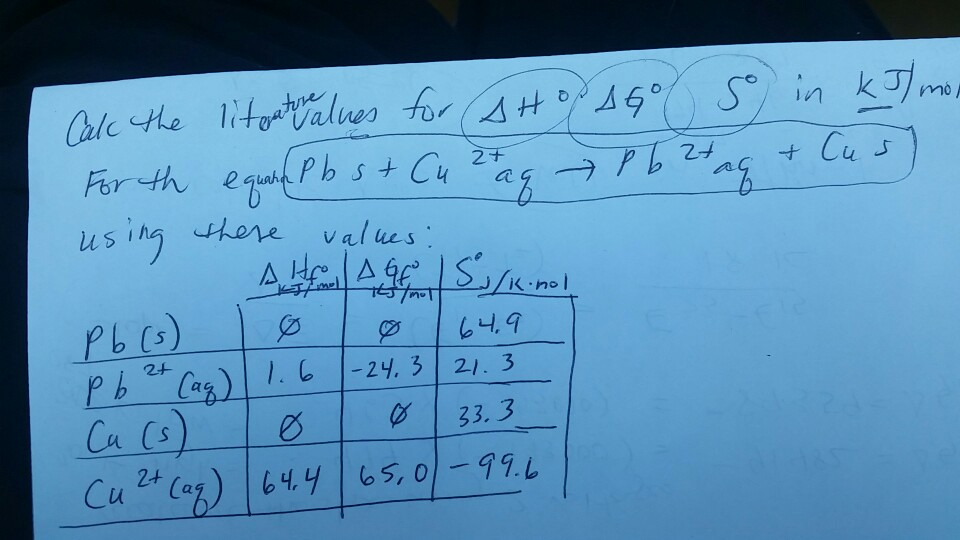 Calc the literature values for ΔH° ΔG° S° in kJ/mol
For th equation Pb s + Cu 2+ aq → Pb 2+ aq + Cu s
using these values:
ΔHf° kJ/mol ΔGf° kJ/mol S° J/K·mol
Pb (s) Ø Ø 64.9
Pb 2+ (aq) 1.6 -24.3 21.3
Cu (s) Ø Ø 33.3
Cu 2+ (aq) 64.4 65.0 -99.6